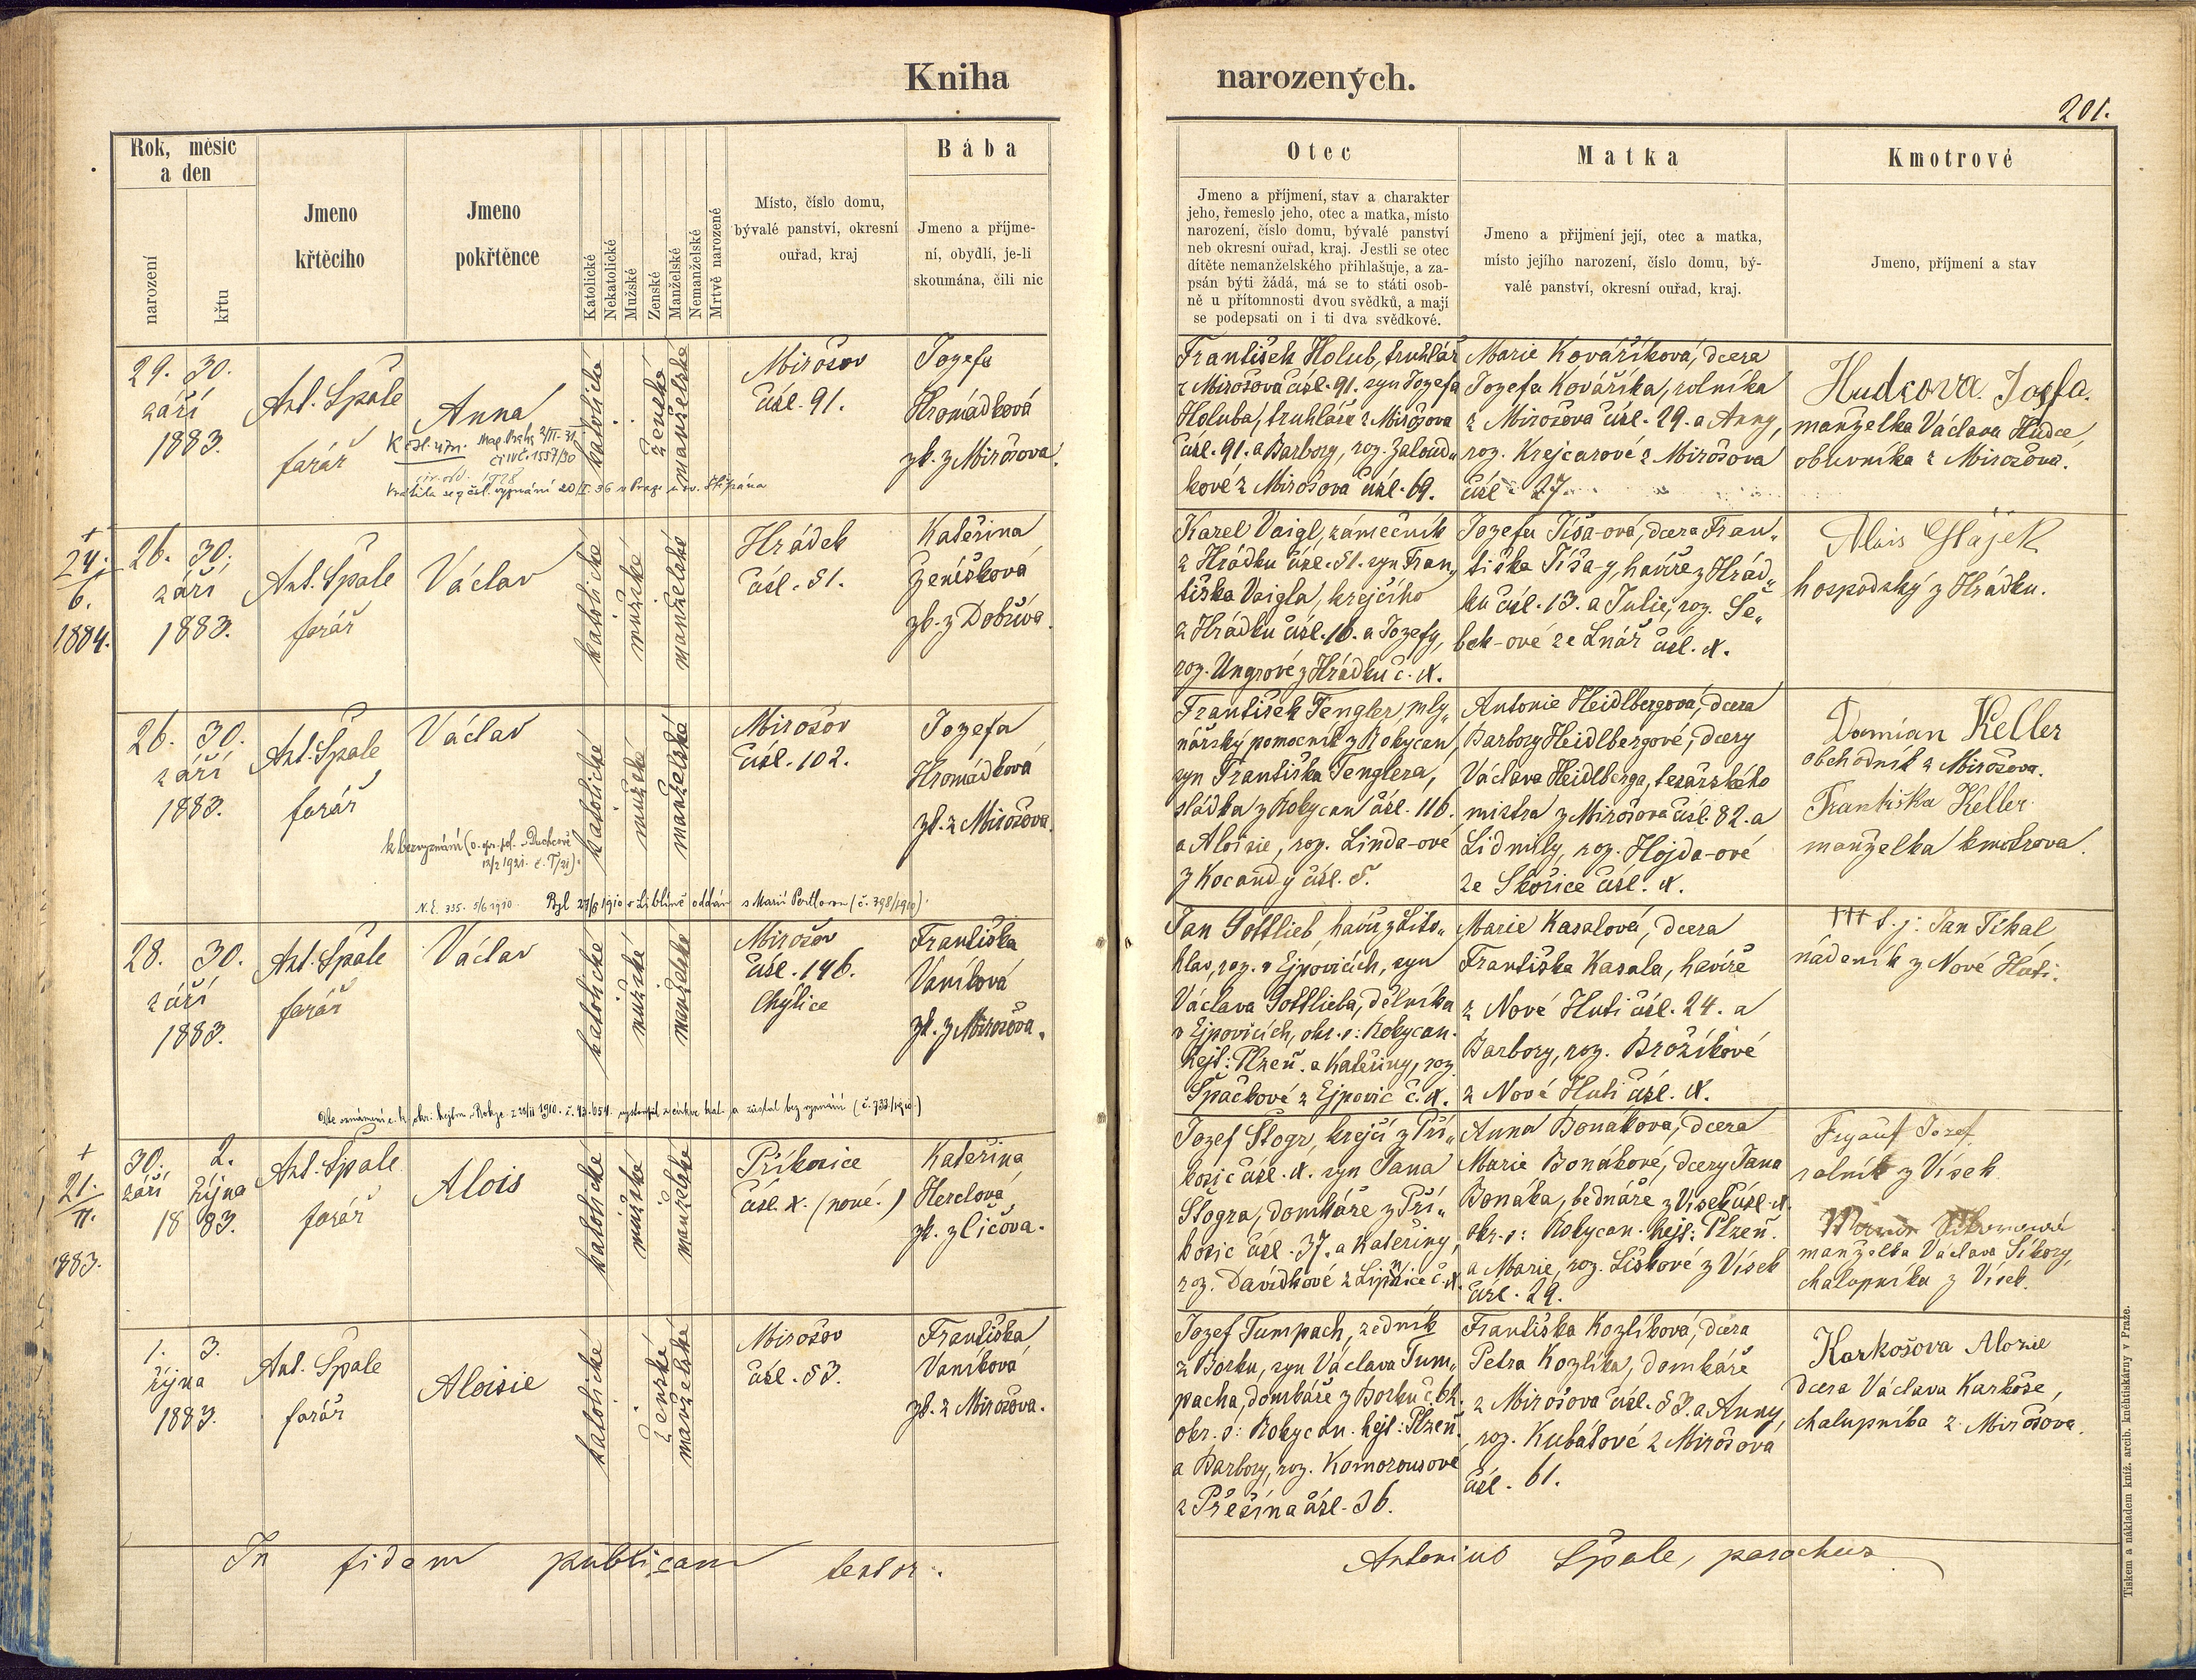 Kniha narozených.
201.
Rok, měsíc
a den
narození
křtu
Jmeno
křtěcího
Jmeno
pokřtěnce
Katolické
Nekatolické
Mužské
Ženské
Manželské
Nemanželské
Mrtvě narozené
Místo, číslo domu,
bývalé panství, okresní
ouřad, kraj
Bába
Jmeno a příjme-
ní, obydlí, je-li
skoumána, čili nic
Otec
Jmeno a příjmení, stav a charakter
jeho, řemeslo jeho, otec a matka, místo
narození, číslo domu, bývalé panství
neb okresní ouřad, kraj. Jestli se otec
dítěte nemanželského přihlašuje, a za-
psán býti žádá, má se to státi osob-
ně u přítomnosti dvou svědků, a mají
se podepsati on i ti dva svědkové.
Matka
Jmeno a přijmení její, otec a matka,
místo jejího narození, číslo domu, bý-
valé panství, okresní ouřad, kraj.
Kmotrové
Jmeno, příjmení a stav
29. 30.
září
1883.
Ant. Špale
farář
Anna
katolické
ženské
manželské
Mirošov
čísl. 91.
Jozefa
Hromádková
zk. z Mirošova.
Vrátila se z čsl. vyznání 20/I. 36 v Praze u sv. Štěpána
František Holub, truhlář
z Mirošova čísl. 91. syn Jozefa
Holuba, truhláře z Mirošova
čísl. 91. a Barbory, roz. Zaloud„
kové z Mirošova čísl. 69.
Marie Kováříková, dcera
Jozefa Kováříka, rolníka
z Mirošova čísl. 29. a Anny,
roz. Krejcarové z Mirošova
čísl. 27.
Hudcova Josefa.
manželka Václava Hudce,
obuvníka z Mirošova.
+
24.
6.
1884.
26. 30.
září
1883.
Ant. Špale
farář
Václav
katolické
mužské
manželské
Hrádek
čísl. 51.
Kateřina
Ženíšková
zk. z Dobříva.
Karel Vaigl, zámečník
z Hrádku čísl. 51. syn Fran„
tiška Vaigla, krejčího
z Hrádku čísl. 16. a Jozefy,
roz. Ungrové z Hrádku č. X.
Jozefa Tíša-ová, dcera Fran„
tiška Tíša-y, havíře z Hrád„
ku čísl. 13. a Julie, roz. Še„
bek-ové ze Lnář čísl. X.
Alois Hájek
hospodský z Hrádku.
26. 30.
září
1883.
Ant. Špale
farář
Václav
katolické
mužské
manželské
Mirošov
čísl. 102.
Jozefa
Hromádková
zk. z Mirošova.
N. E. 335. 5/6 1910. Byl 27/6 1910 v Libline oddán s Marií (č. 798/1910).
František Tengler, mly„
nářský pomocník z Rokycan,
syn Františka Tenglera,
sládka z Rokycan čísl. 116.
a Aloisie, roz. Linda-ové
z Kocandy čísl. 5.
Antonie Heidlbergová, dcera
Barbory Heidlbergové, dcery
Václava Heidlberga, tesařského
mistra z Mirošova čísl. 82. a
Lidmily, roz. Hojda-ové
ze Skořice čísl. X.
Damian Keller
obchodník z Mirošova.
Františka Keller
manželka kmotrova.
28. 30.
září
1883.
Ant. Špale
farář
Václav
katolické
mužské
manželské
Mirošov
čísl. 146.
Chýlice
Františka
Vaníková
zk. z Mirošova.
Jan Gottlieb, havíř z Lito„
hlav, roz. v Ejpovicích, syn
Václava Gottlieba, dělníka
v Ejpovicích, okr. s: Rokycan.
hejt: Plzeň. a Kateřiny, roz.
Špačkové z Ejpovic č. X.
Marie Kasalová, dcera
Františka Kasala, havíře
z Nové Huti čísl. 24. a
Barbory, roz. Brožíkové
z Nové Huti čísl. X.
+++ t. j: Jan Tikal
nádeník z Nové Huti.
+
21.
11.
1883.
30. 2.
září října
18 83.
Ant. Špale
farář
Alois
katolické
mužské
manželské
Příkosice
čísl. X. (nové.)
Kateřina
Herclová,
zk. z Číčova.
Jozef Štogr, krejčí z Pří„
kosic čísl. X. syn Jana
Štogra, domkáře z Pří„
kosic čísl. 37. a Kateřiny,
roz. Davídkové z Lipnice č. X.
Anna Bonáková, dcera
Marie Bonákové, dcery Jana
Bonáka, bednáře z Vísek čísl. X.
okr. s: Rokycan. hejt: Plzeň.
a Marie, roz. Liškové z Vísek
čísl. 29.
Frýauf Jozef,
rolník z Vísek
manželka Václava Síkory,
chalupníka z Vísek.
1. 3.
října
1883.
Ant. Špale
farář
Aloisie
katolické
ženské
manželské
Mirošov
čísl. 53.
Františka
Vaníková
zk. z Mirošova.
Jozef Tumpach, zedník
z Borku, syn Václava Tum„
pacha, domkáře z Borku č. 62.
okr. s: Rokycan. hejt: Plzeň.
a Barbory, roz. Komorousové
z Přešína čísl. 36.
Františka Kozlíková, dcera
Petra Kozlíka, domkáře
z Mirošova čísl. 53. a Anny,
roz. Kubátové z Mirošova
čísl. 61.
Karkošova Aloisie
dcera Václava Karkoše,
chalupníka z Mirošova.
In fidem publicam testor. Antonius Špale, parochus
Tiskem a nákladem kníž. arcib. knihtiskárny v Praze.